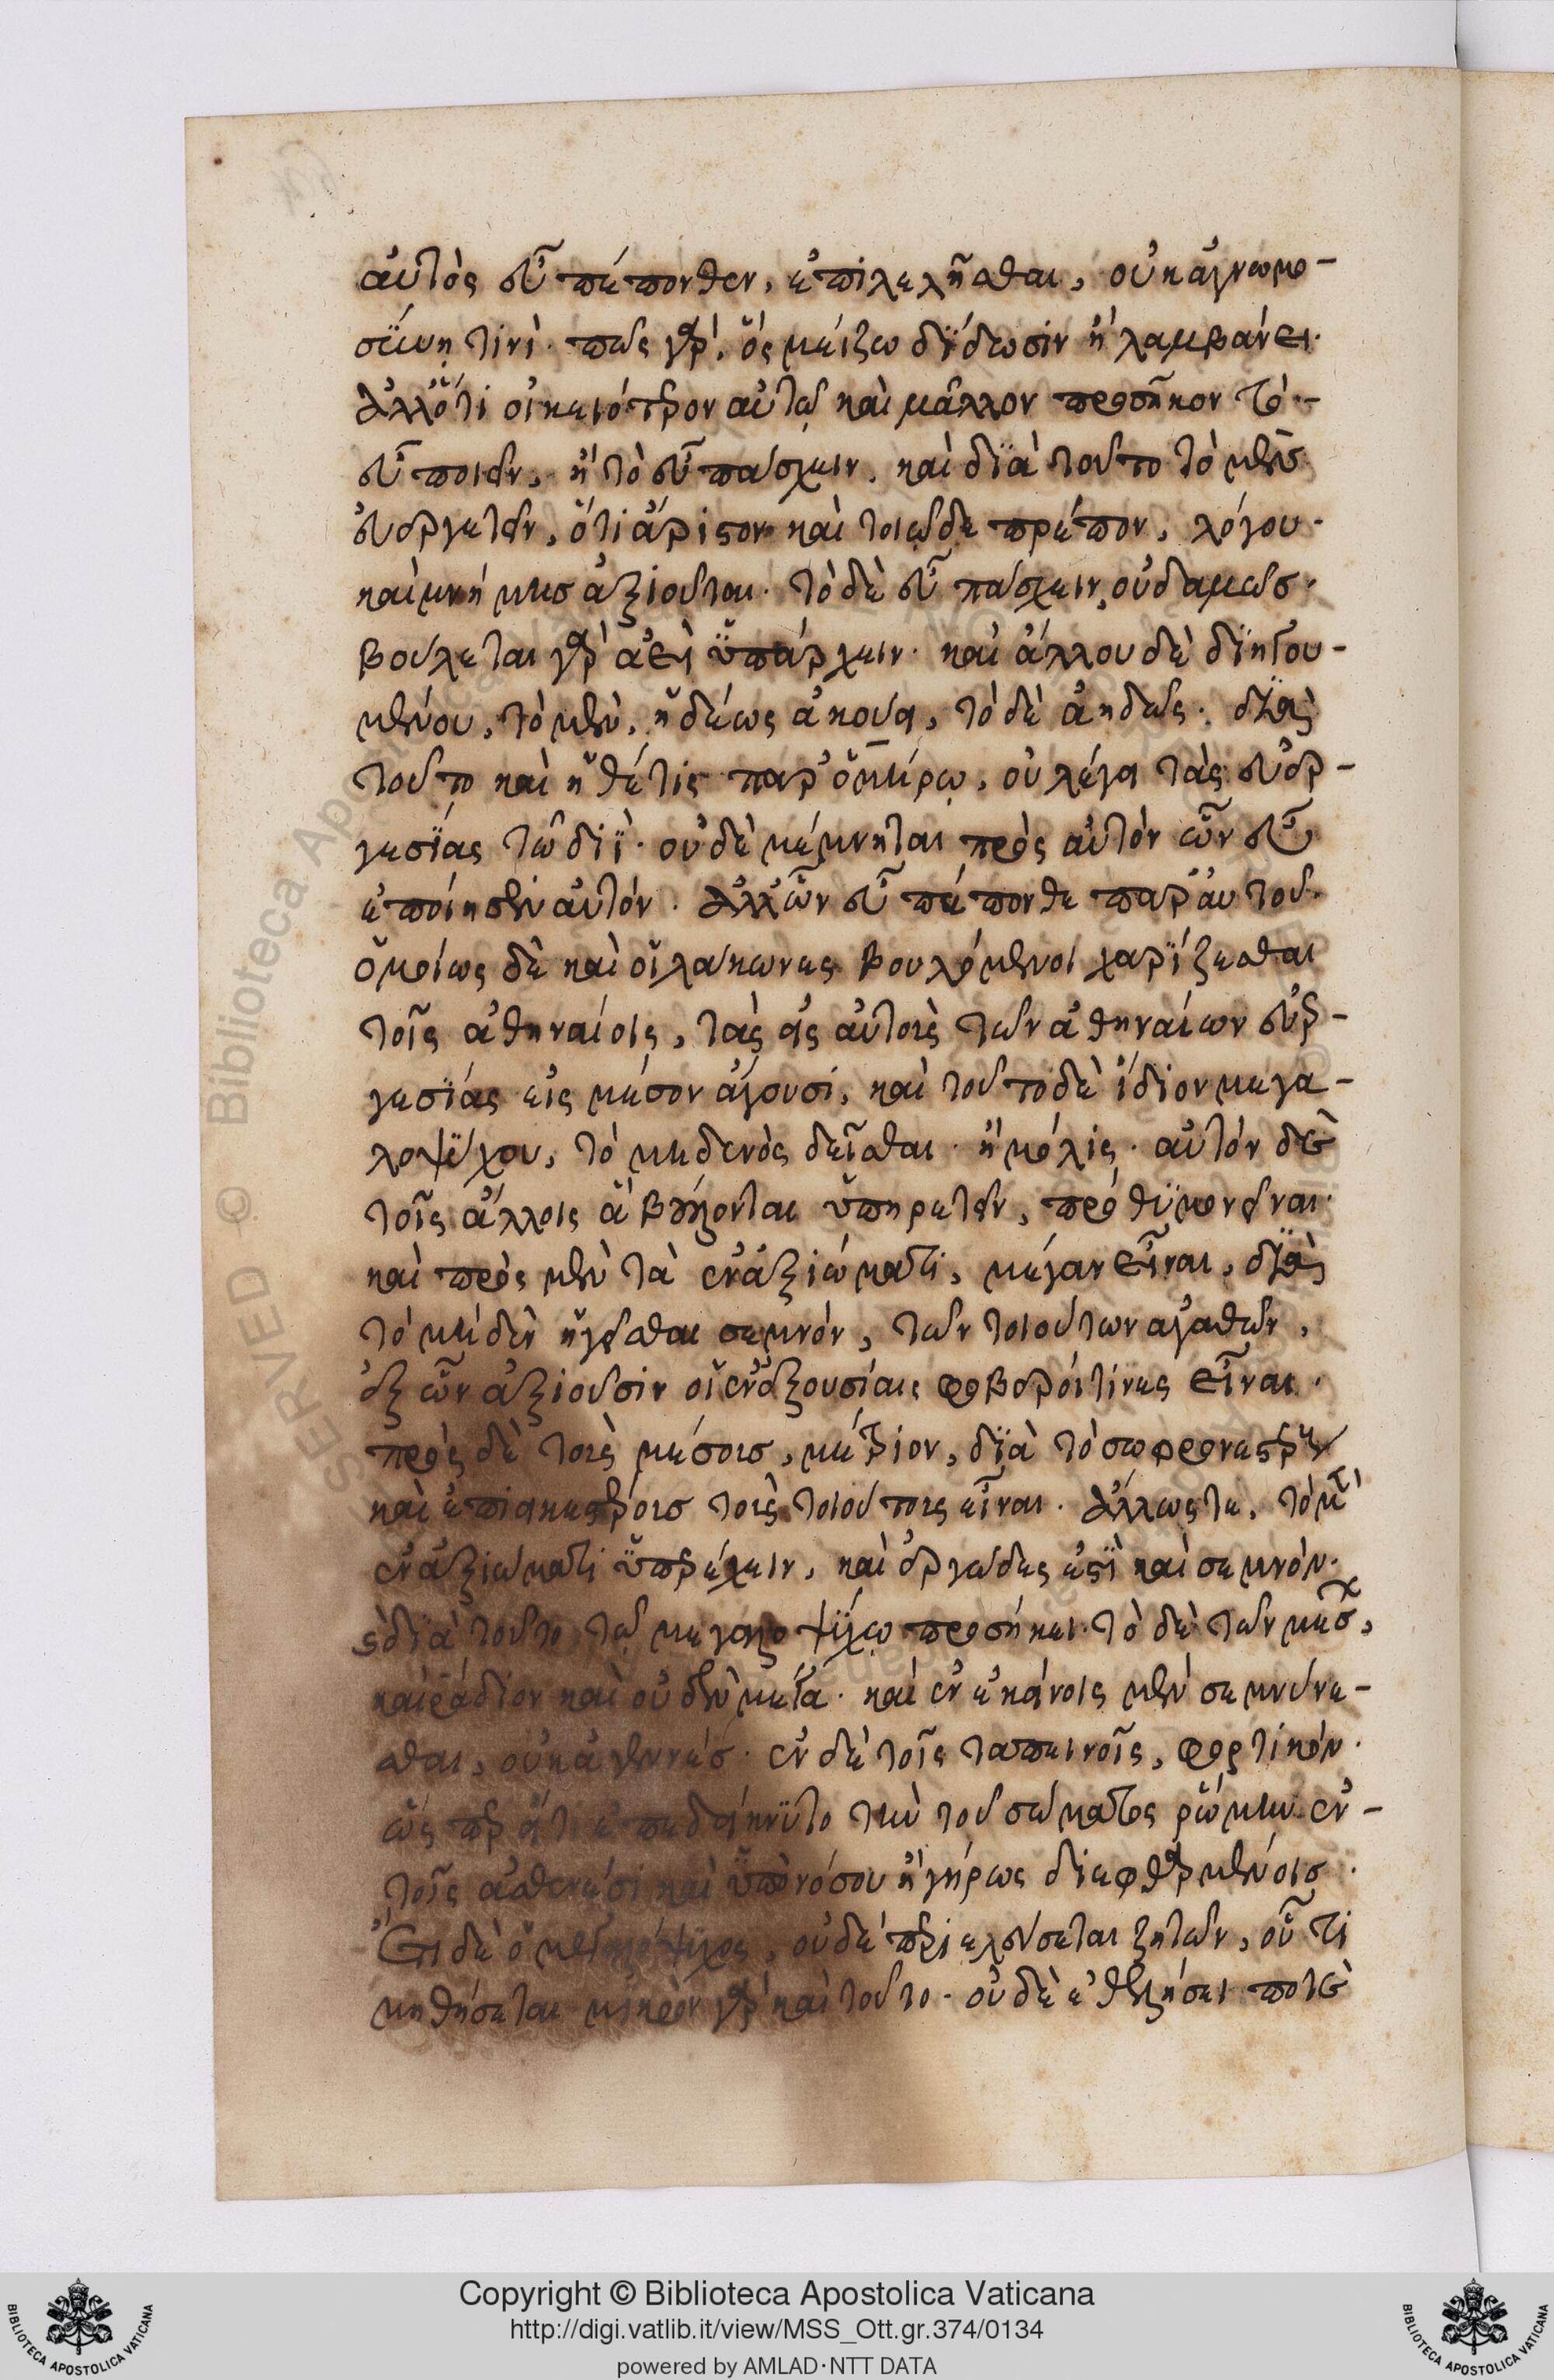 αὐτὸς εὖ πέπονθεν, ἐπιλελῆσθαι, οὐκ ἀγνωμο-
σύνῃ τινί· πῶς γὰρ, ὅς μείζω δίδωσιν ἢ λαμβάνει·
ἀλλ' ὅτι οἰκειότερον αὐτῷ καὶ μᾶλλον προσῆκον τὸ
εὖ ποιεῖν, ἢ τὸ εὖ πάσχειν. καὶ διὰ τοῦτο τὸ μὲν
εὐεργετεῖν, ὅτι ἄριστον καὶ τοιῷδε πρέπον, λόγου·
καὶ μνήμης ἀξιοῦται· τὸ δὲ εὖ πάσχειν, οὐδαμῶς·
βούλεται γὰρ ἀεὶ ὑπάρχειν· καὶ ἄλλου δὲ διηγου-
μένου, τὸ μὲν, ἡδέως ἀκούει, τὸ δὲ ἀηδῶς· διὰ
τοῦτο καὶ ἡ θέτις παρ' ὁμήρῳ, οὐ λέγει τὰς εὐερ-
γεσίας τῷ διΐ· οὐδὲ μέμνηται πρὸς αὐτὸν ὧν εὖ
ἐποίησεν αὐτόν· ἀλλ' ὧν εὖ πέπονθε παρ' αὐτοῦ·
ὁμοίως δὲ καὶ οἱ λάκωνες βουλόμενοι χαρίζεσθαι
τοῖς ἀθηναίοις, τὰς εἰς αὐτοὺς τῶν ἀθηναίων εὐερ-
γεσίας εἰς μέσον ἄγουσι, καὶ τοῦτο δὲ ἴδιον μεγα-
λοψύχου, τὸ μηδενὸς δεῖσθαι· ἢ μόλις· αὐτὸν δὲ
τοῖς ἄλλοις ἃ βούλονται ὑπηρετεῖν, πρόθυμον εἶναι·
καὶ πρὸς μὲν τὰ ἐν ἀξιώματι, μέγαν εἶναι, διὰ
τὸ μηδὲν ἡγεῖσθαι σεμνὸν, τῶν τοιούτων ἀγαθῶν,
ἐξ ὧν ἀξιοῦσιν οἱ ἐν ἐξουσίαις φοβεροί τινες εἶναι·
πρὸς δὲ τοὺς μέσους, μέτριον, διὰ τὸ σωφρονεστέρους
καὶ ἐπιεικεστέρους τοὺς τοιούτους εἶναι· ἄλλως τε, τὸ μὲν
ἐν ἀξιώματι ὑπερέχειν, καὶ ἐργῶδες ἐστὶ καὶ σεμνόν·
καὶ διὰ τοῦτο τῷ μεγαλοψύχῳ προσήκει· τὸ δὲ τῶν μέσων,
καὶ ῥάδιον καὶ οὐδὲν μέγα· καὶ ἐν ἐκείνοις μὲν σεμνύνε-
σθαι, οὐκ ἀγεννές· ἐν δὲ τοῖς ταπεινοῖς, φορτικόν·
ὥσπερ εἴ τις ἐπεδείκνυτο τὴν τοῦ σώματος ῥώμην ἐν
τοῖς ἀσθενέσι καὶ ὑπὸ νόσου ἢ γήρως διεφθαρμένοις·
Ἔτι δὲ ὁ μεγαλόψυχος, οὐδὲ περιελεύσεται ζητῶν, οὗ τι
μηθήσεται μικρὸν γὰρ καὶ τοῦτο· οὐδὲ ἐθελήσει ποτὲ
Copyright © Biblioteca Apostolica Vaticana
http://digi.vatlib.it/view/MSS_Ott.gr.374/0134
powered by AMLAD·NTT DATA